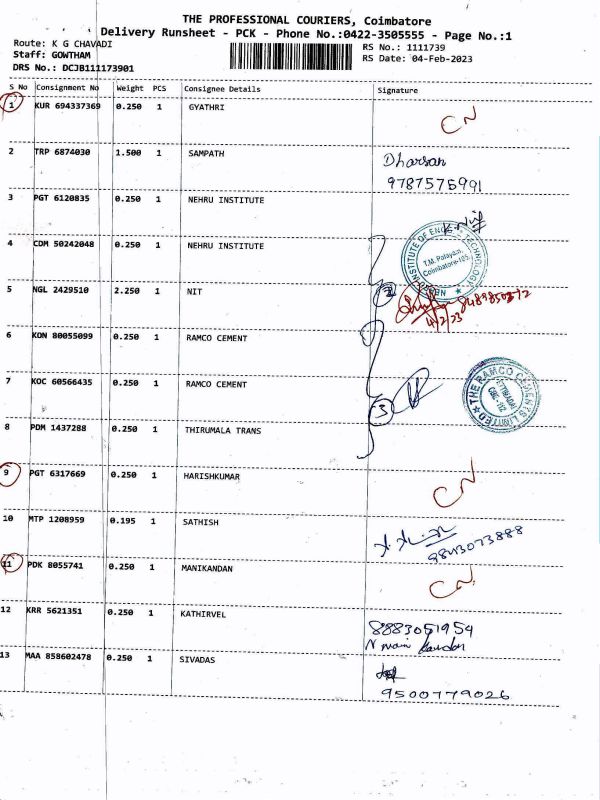 THE PROFESSIONAL COURIERS, Coimbatore
Delivery Runsheet - PCK - Phone No.:0422-3505555 - Page No.:1
Route: K G CHAVADI
Staff: GOWTHAM
DRS No.: DCJB111173901
RS No.: 1111739
RS Date: 04-Feb-2023
S No Consignment No Weight PCS Consignee Details Signature
1 KUR 694337369 0.250 1 GYATHRI CN
2 TRP 6874030 1.500 1 SAMPATH Dharsan
9787575991
3 PGT 6120835 0.250 1 NEHRU INSTITUTE
4 CDM 50242048 0.250 1 NEHRU INSTITUTE
INSTITUTE OF TECHNOLOGY
T.M. Palayam,
Coimbatore-105.
5 NGL 2429510 2.250 1 NIT
4/2/23
6 KON 80055099 0.250 1 RAMCO CEMENT
7 KOC 60566435 0.250 1 RAMCO CEMENT
3
THE RAMCO CEMENTS LIMITED
8 PDM 1437288 0.250 1 THIRUMALA TRANS
9 PGT 6317669 0.250 1 HARISHKUMAR CN
10 MTP 1208959 0.195 1 SATHISH
9843073888
11 PDK 8055741 0.250 1 MANIKANDAN CN
12 KRR 5621351 0.250 1 KATHIRVEL 8883051954
13 MAA 858602478 0.250 1 SIVADAS
9500779026